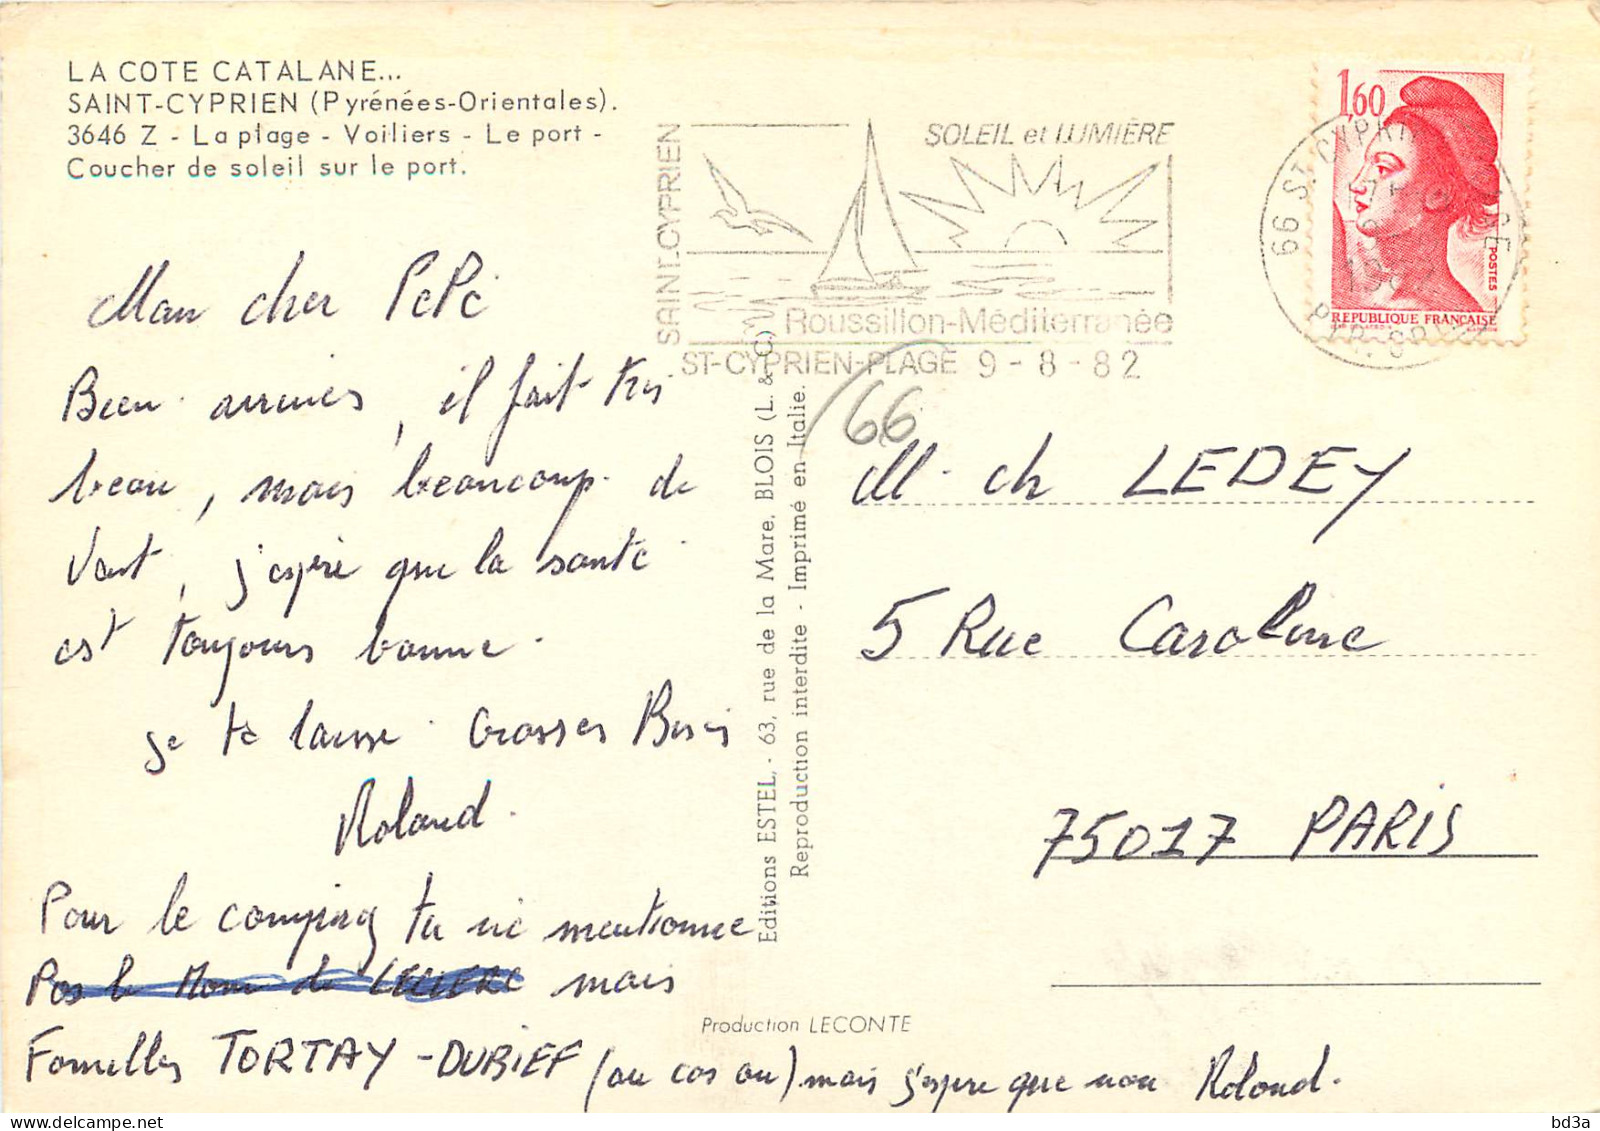 LA COTE CATALANE...
SAINT-CYPRIEN (Pyrénées-Orientales).
3646 Z - La plage - Voiliers - Le port -
Coucher de soleil sur le port.
SAINT.CYPRIEN
SOLEIL et LUMIÈRE
Roussillon-Méditerranée
ST-CYPRIEN-PLAGE 9-8-82
1,60
POSTES
REPUBLIQUE FRANÇAISE
66 ST. CYPRIEN PLAGE
PYR. OR.
66
Mon cher PéPé
Bien arrivés, il fait très
beau, mais beaucoup de
Vent, j'espère que la santé
est toujours bonne.
je te laisse. Grosses Bises
Roland.
Pour le camping tu ne mentionne
Pas le Nom de LECLERC mais
Familles TORTAY-DUBIEF (au cas ou) mais j'espere que non Roland.
Editions ESTEL, - 63, rue de la Mare, BLOIS (L. & C.)
Reproduction interdite - Imprimé en Italie.
M. ch LEDEY
5 Rue Caroline
75017 PARIS
Production LECONTE
bd3a